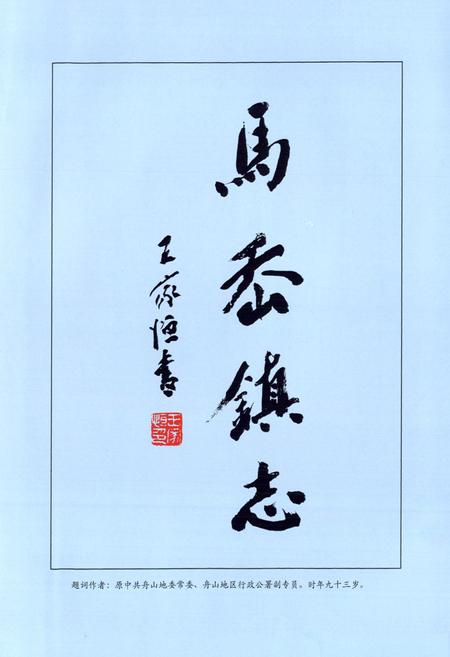 馬岙鎮志
王家恒書
王家恒印
题词作者：原中共舟山地委常委、舟山地区行政公署副专员。时年九十三岁。